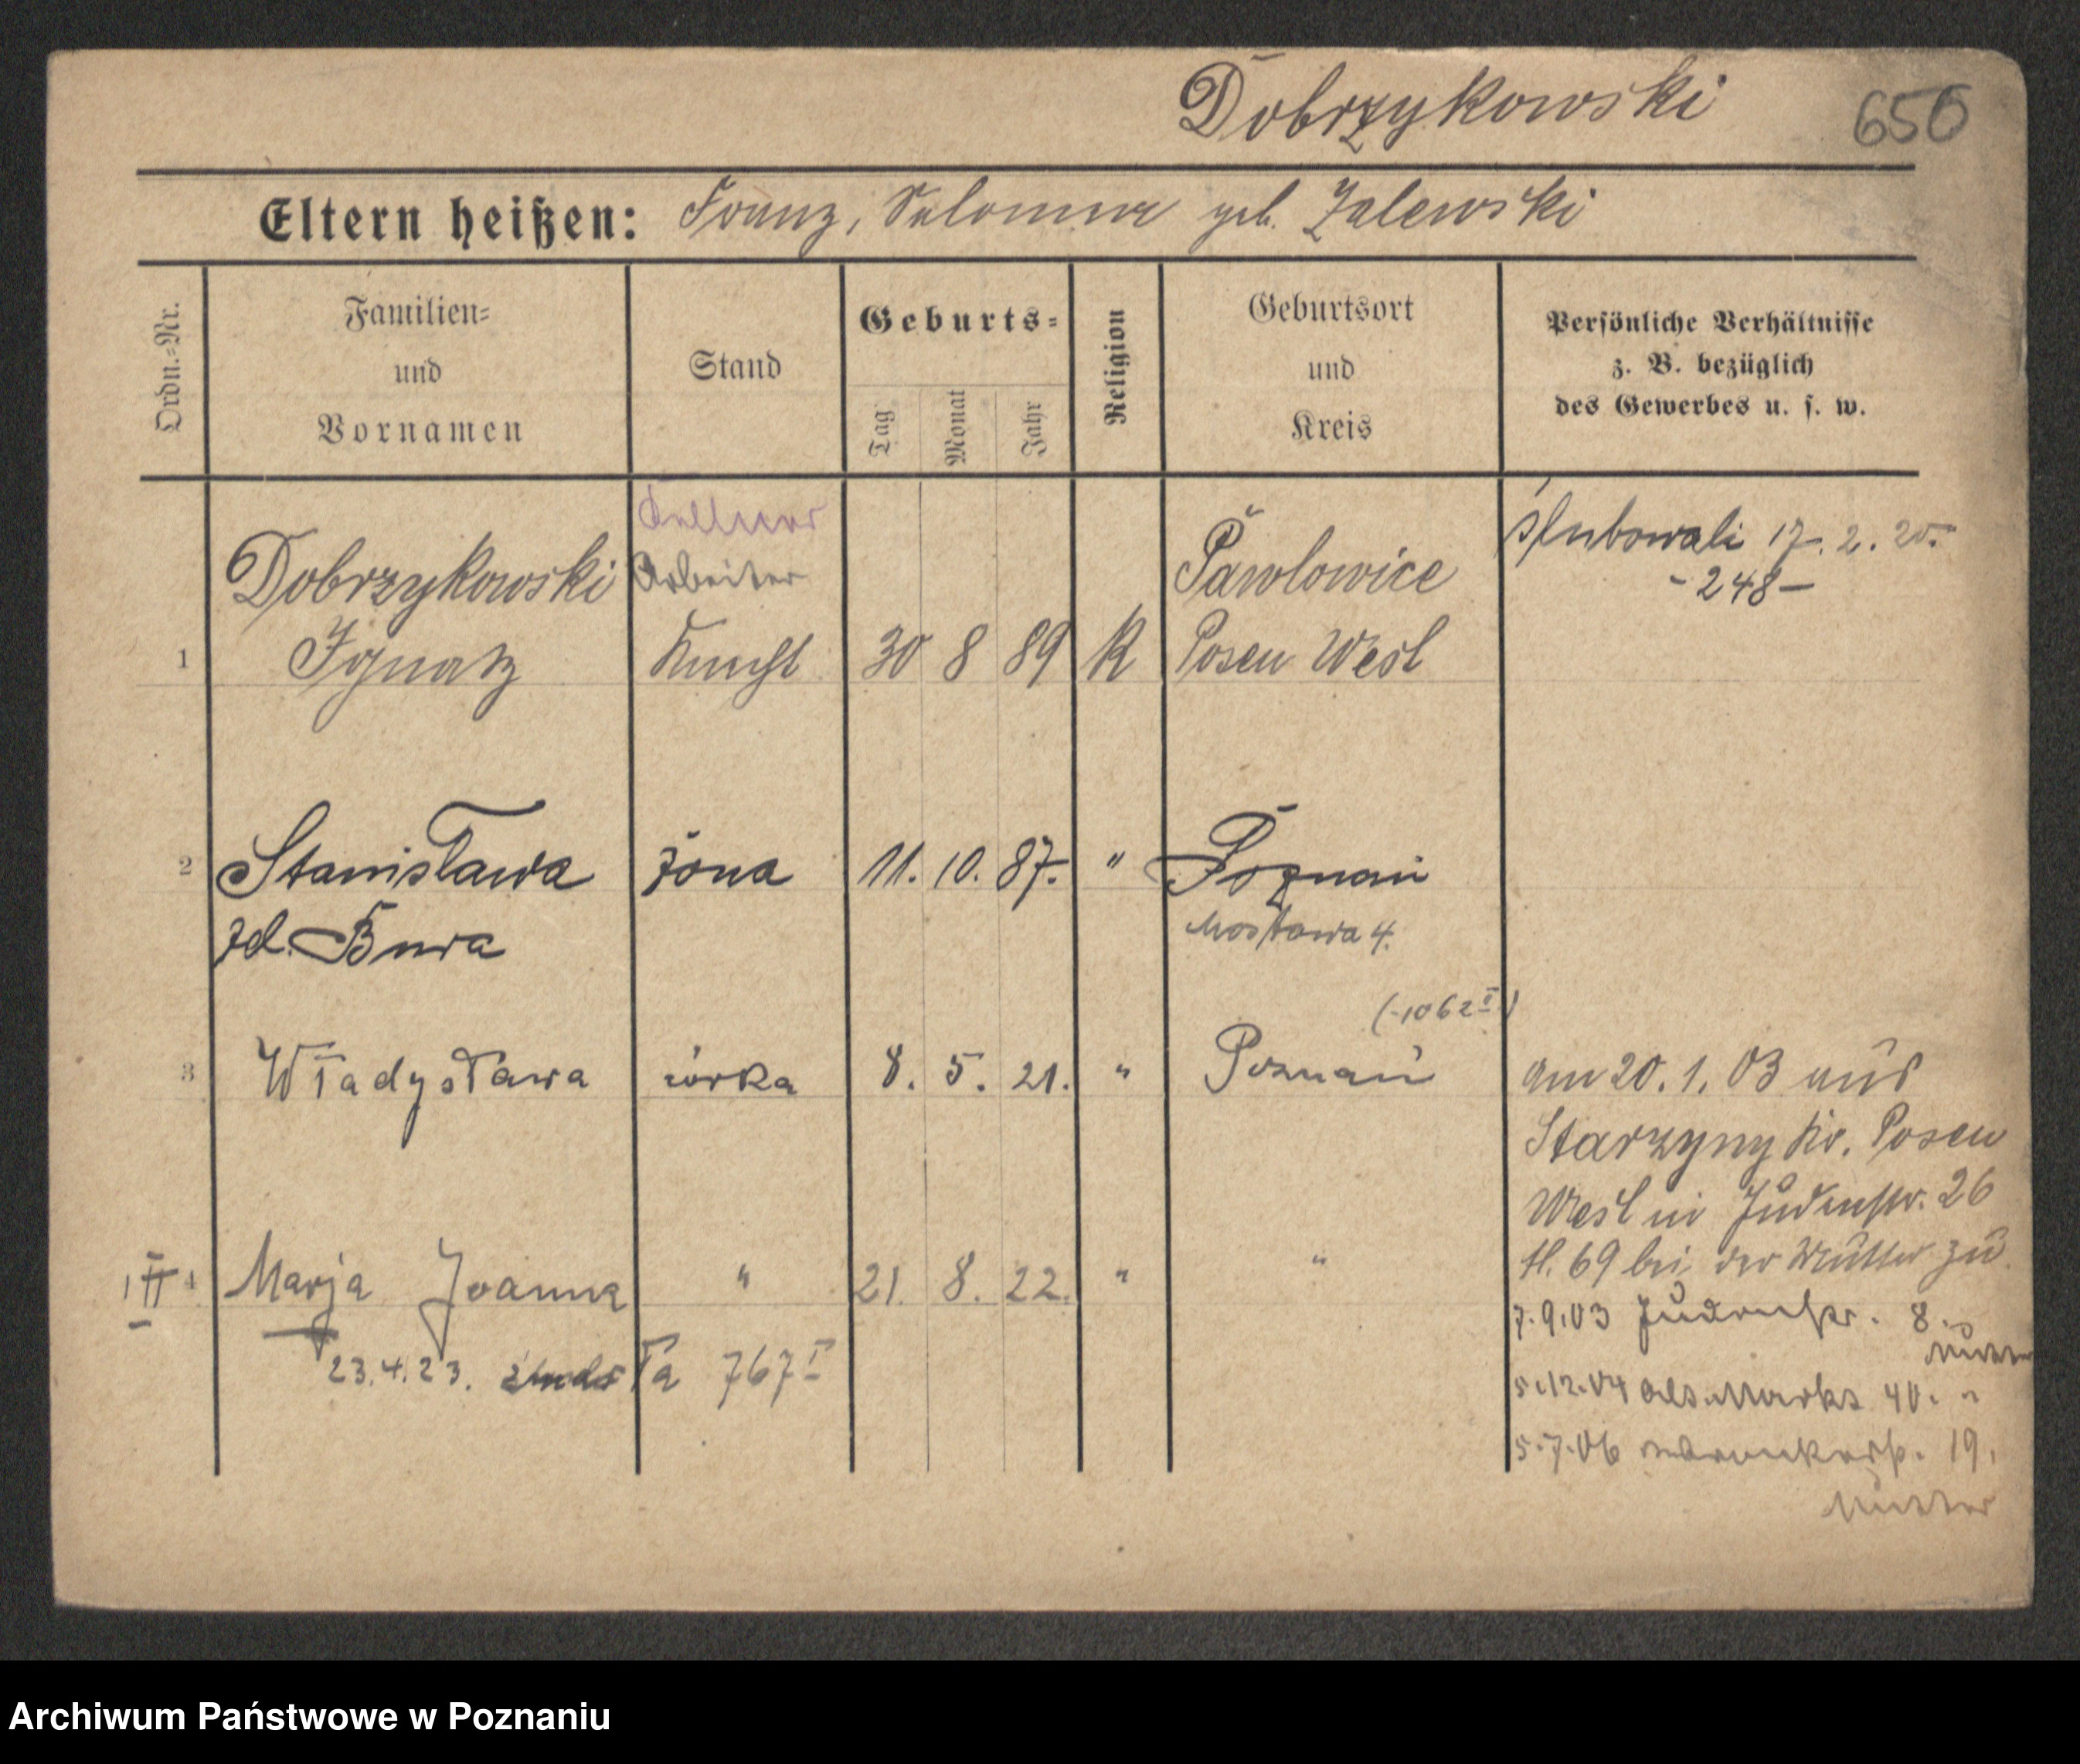 Dobrzykowski
650
Eltern heißen: Franz, Salomea geb. Zalewski
Ordn.-Nr.
Familien-
und
Vornamen
Stand
Geburts-
Tag
Monat
Jahr
Religion
Geburtsort
und
Kreis
Persönliche Verhältnisse
z. B. bezüglich
des Gewerbes u. s. w.
Kellner
Arbeiter
1 Dobrzykowski
Ignatz
Knecht 30 8 89 K
Pawlowice
Posen West
ślubowali 17. 2. 20.
- 248 -
2 Stanisława żona 11. 10. 87. " Poznań
zd. Bura
Mostowa 4.
(-1062 II)
3 Władysława córka 8. 5. 21. " Poznań
4 Marja Joanna " 21. 8. 22. " "
23.4.23. Ta 767 I
am 20. 1. 03 aus
Starzyny Kr. Posen
West in Judenstr. 26
tl. 69 bei der Mutter zu
7.9.03 Judenstr. 8.
Mutter
5.12.04 Als. Markt 40. "
5.7.06 19.
Mutter
Archiwum Państwowe w Poznaniu